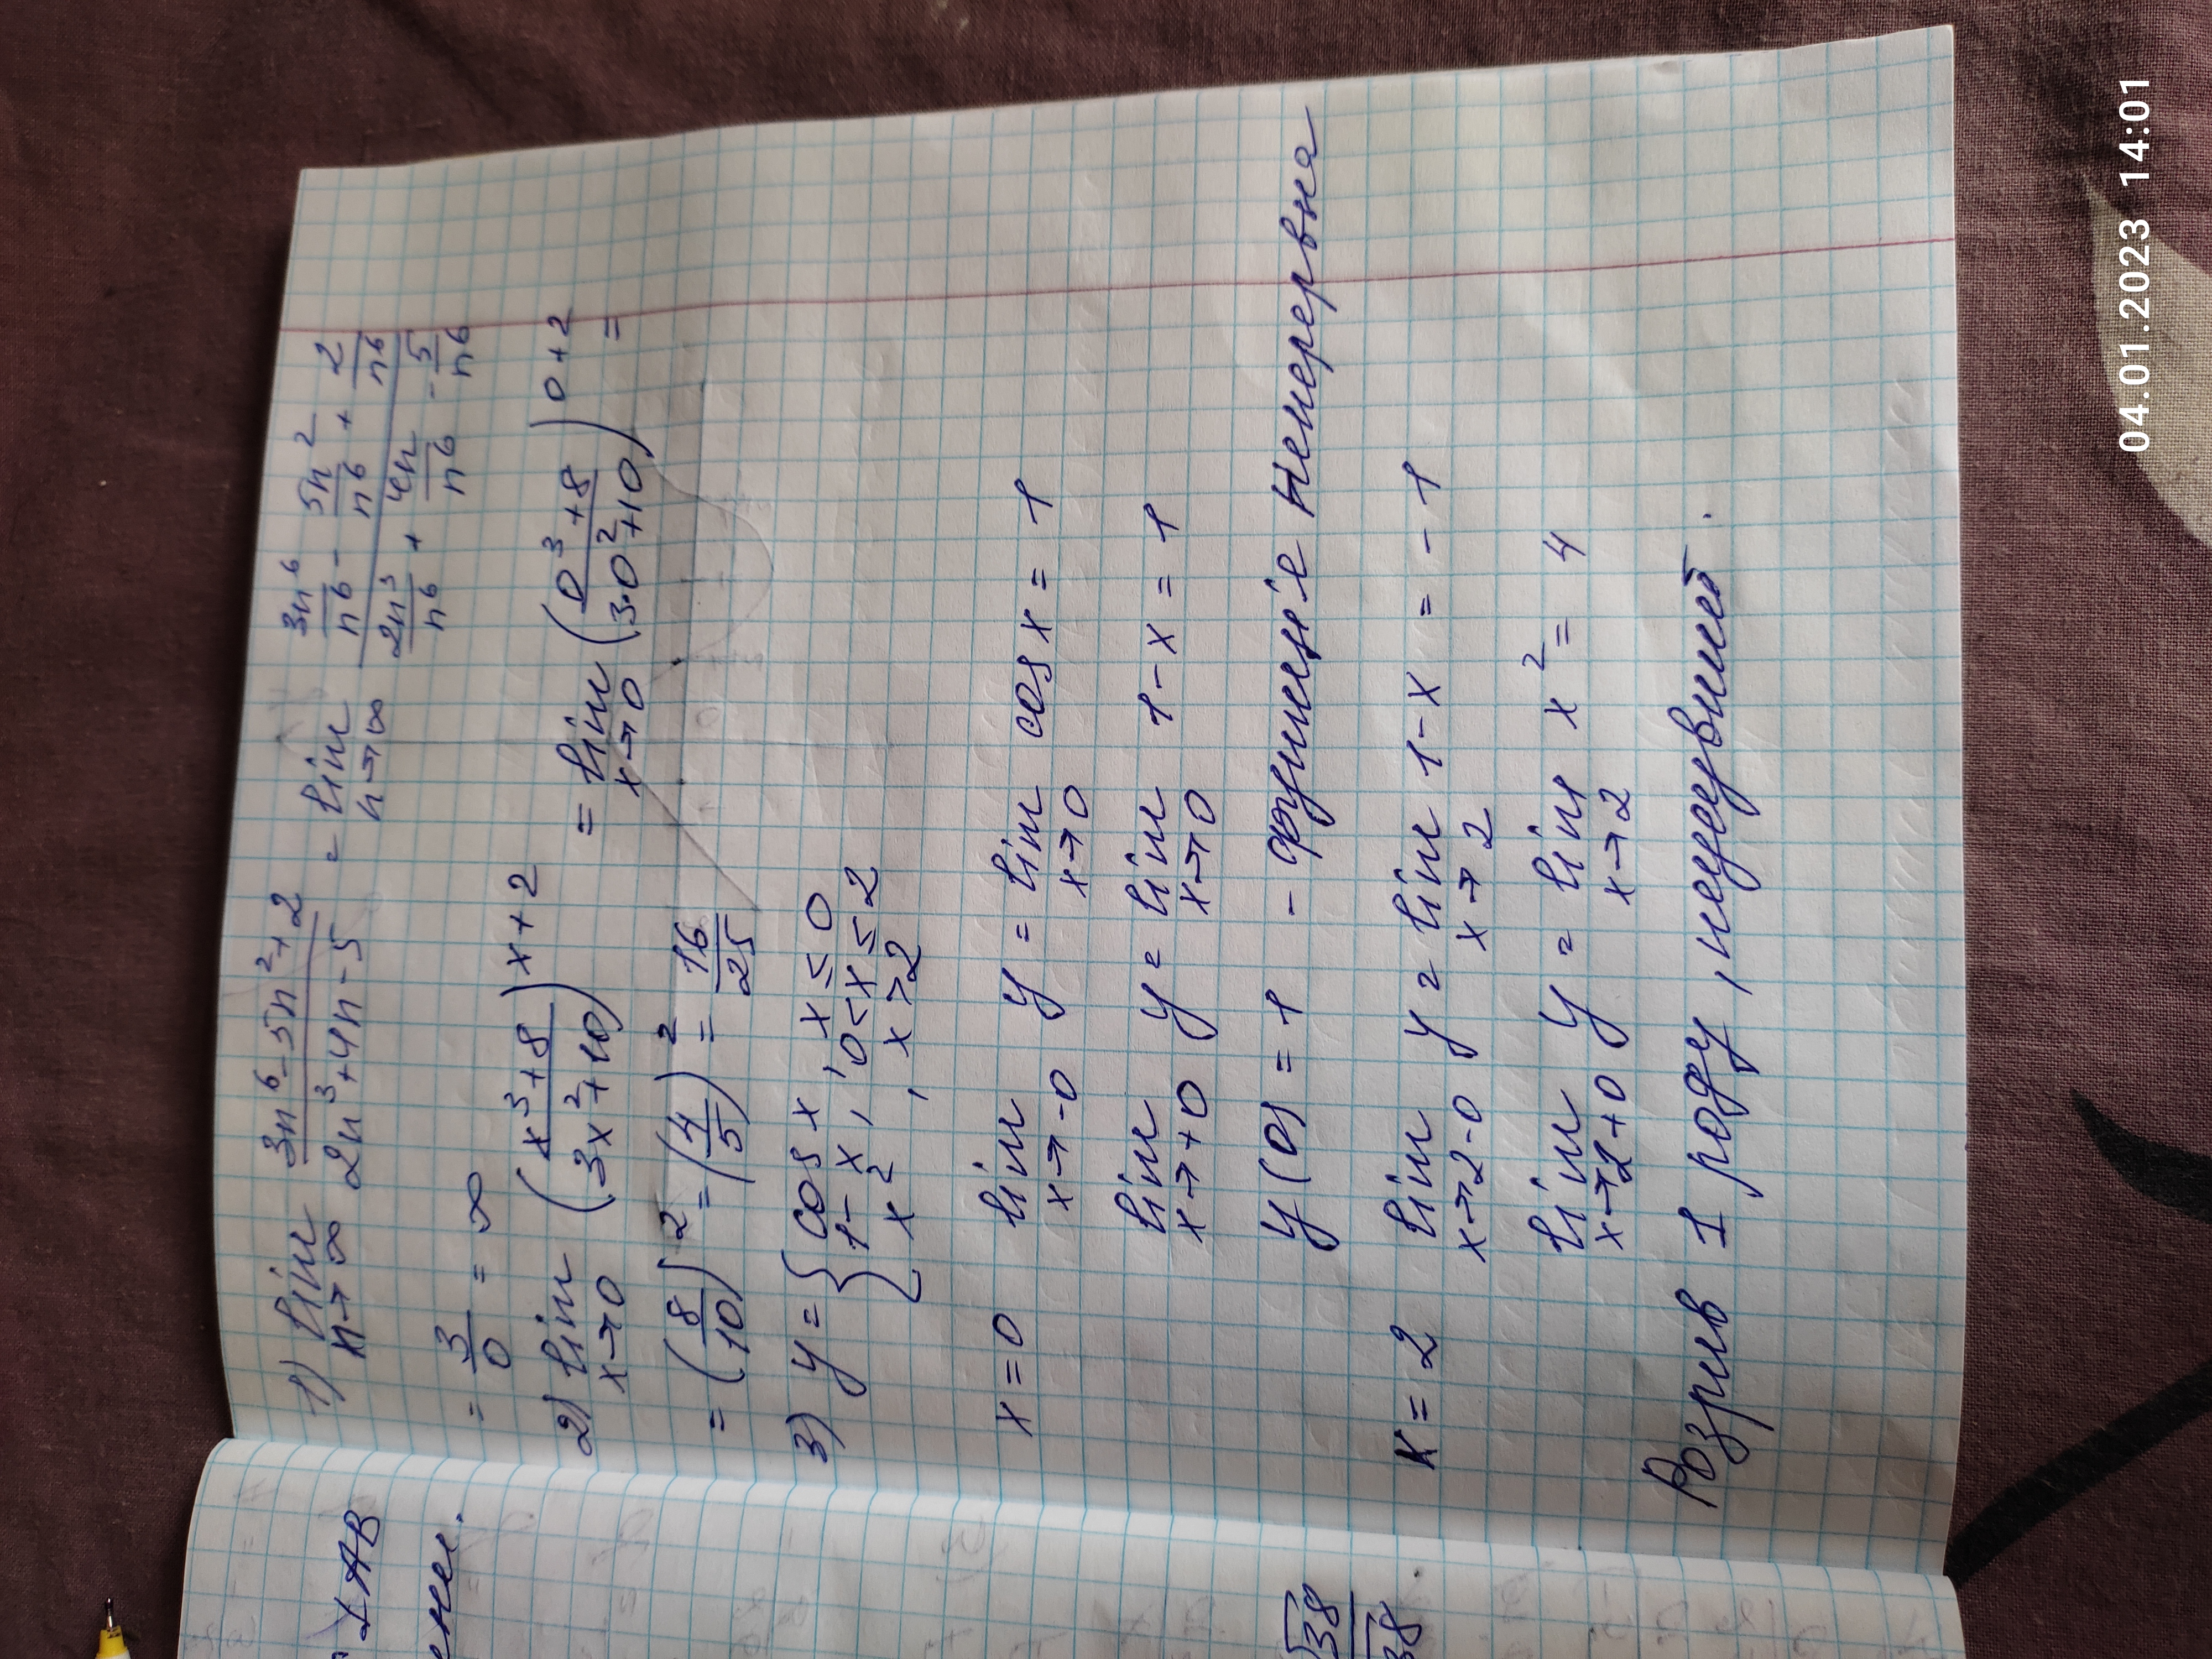 1) lim n→∞ (3n⁶-5n²+2)/(2n³+4n-5) = lim n→∞ (3n⁶/n⁶ - 5n²/n⁶ + 2/n⁶)/(2n³/n⁶ + 4n/n⁶ - 5/n⁶)
= 3/0 = ∞
2) lim x→0 ((x³+8)/(3x²+10))^(x+2) = lim x→0 ((0³+8)/(3·0²+10))^(0+2) =
= (8/10)² = (4/5)² = 16/25
3) y = { cos x, x ≤ 0
1-x, 0<x≤2
x², x>2
x=0 lim x→-0 y = lim x→0 cos x = 1
lim x→+0 y = lim x→0 1-x = 1
y(0) = 1 - функціє неперервна
x=2 lim x→2-0 y = lim x→2 1-x = -1
lim x→2+0 y = lim x→2 x² = 4
Розрив 1 роду,
⊥ AB
√38
04.01.2023 14:01